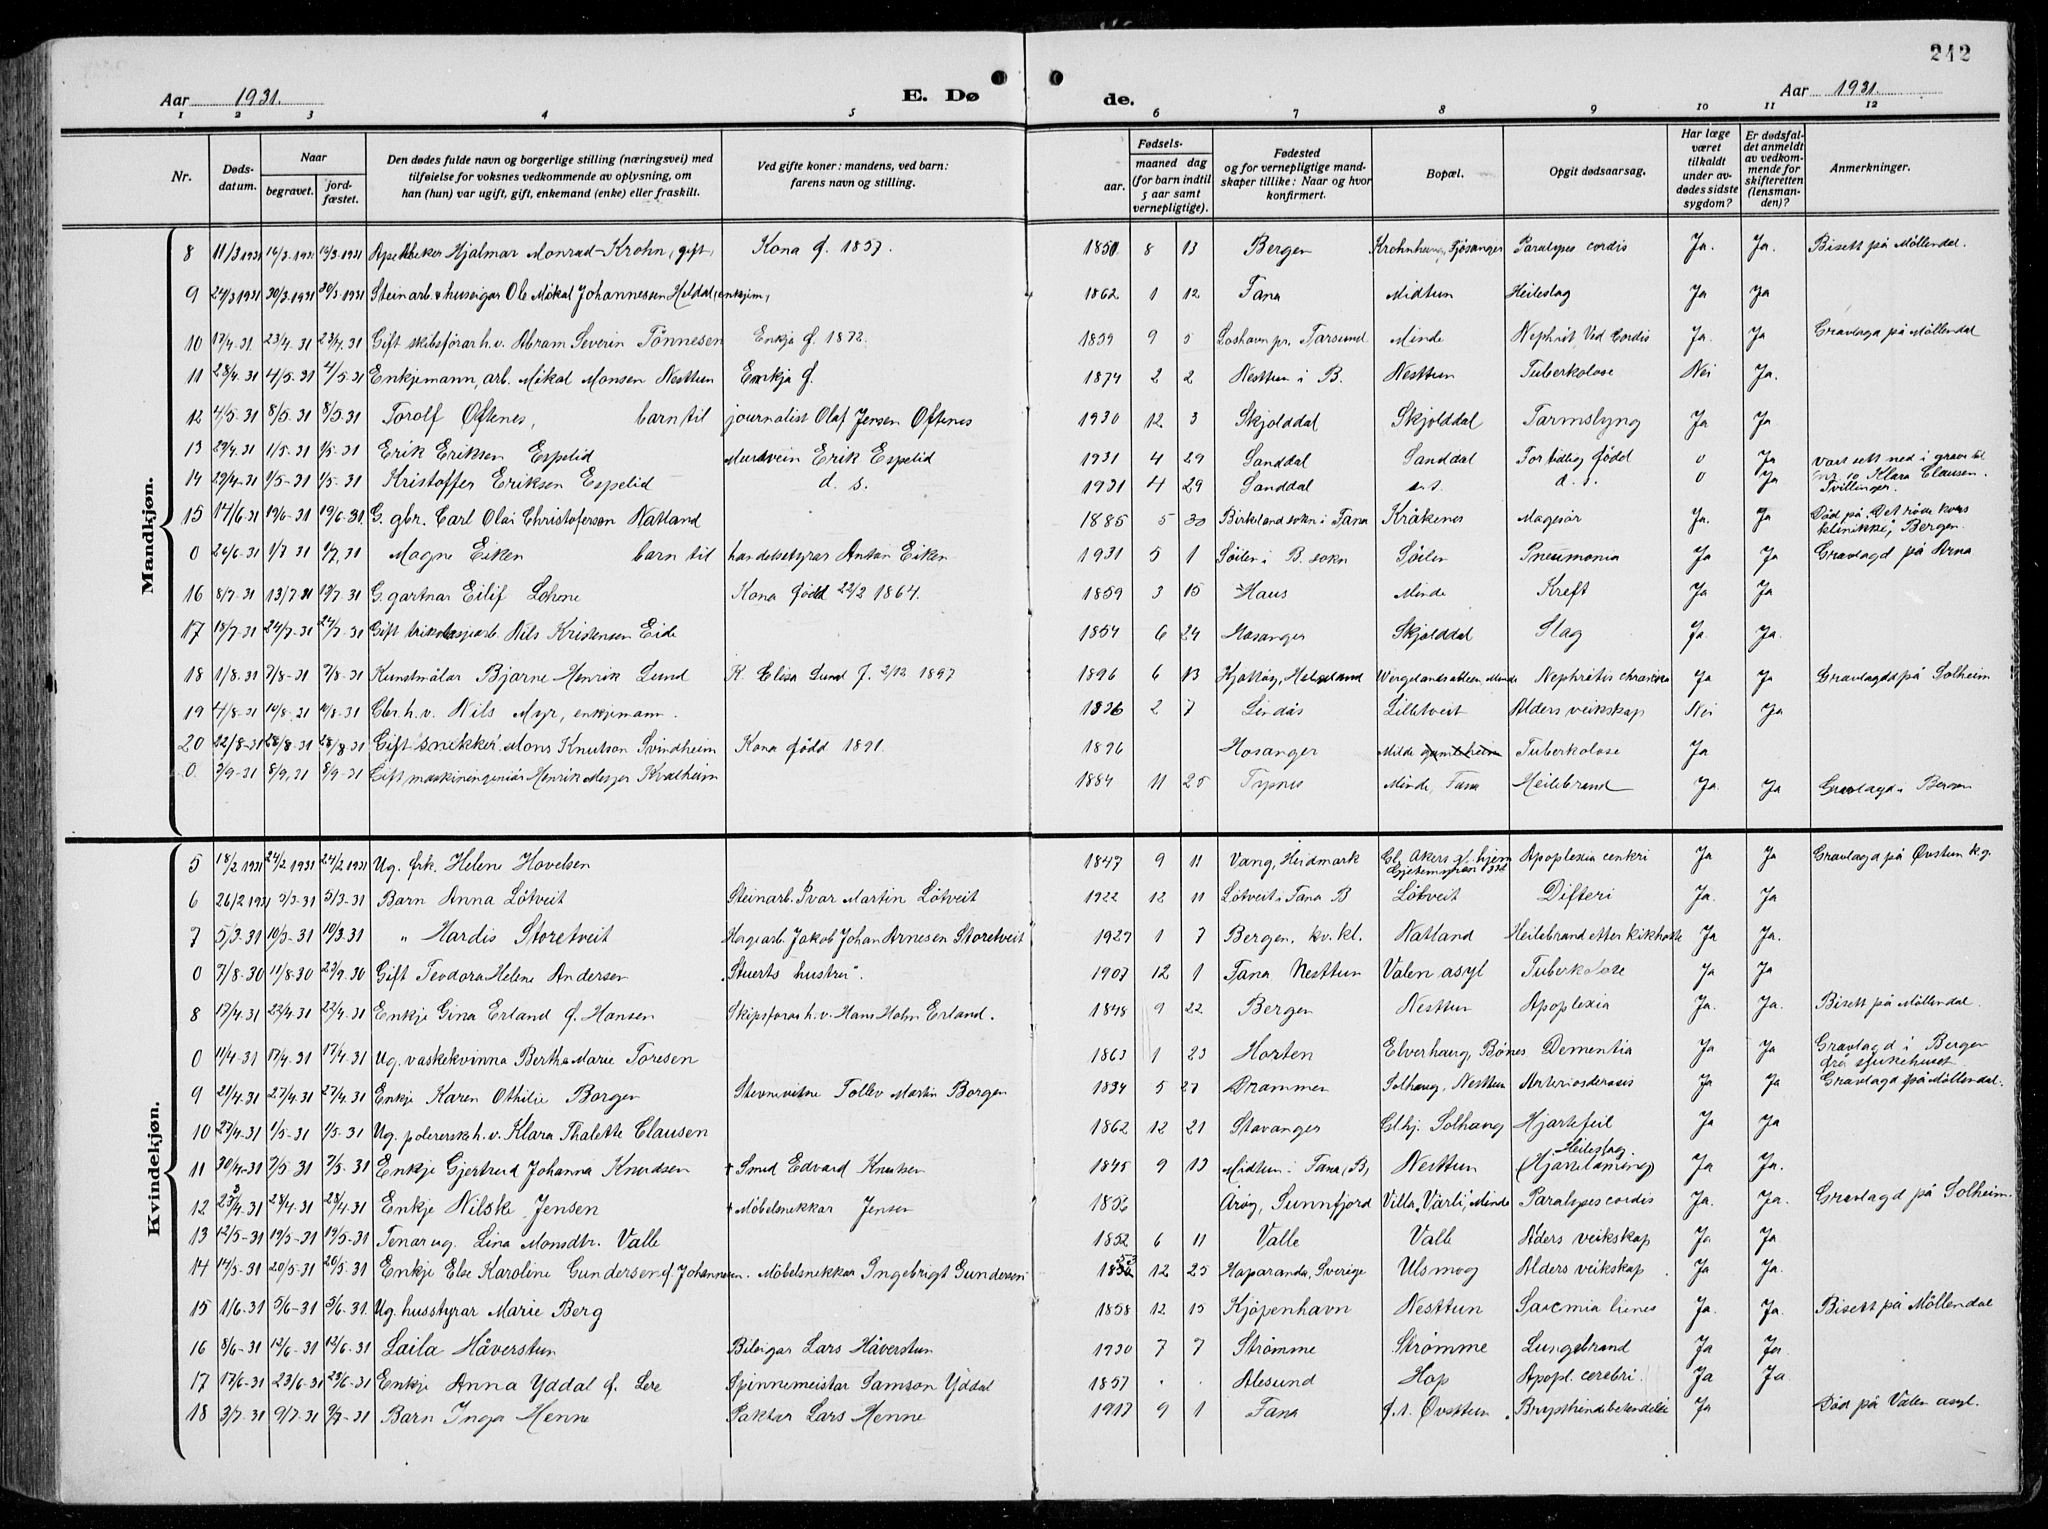 242
Aar 1931. E. Dø de. Aar 1931.
1 2 3 4 5 6 7 8 9 10 11 12
Nr.
Døds-
datum.
Naar
begravet.
jord-
fæstet.
Den dødes fulde navn og borgerlige stilling (næringsvei) med
tilføielse for voksnes vedkommende av oplysning, om
han (hun) var ugift, gift, enkemand (enke) eller fraskilt.
Ved gifte koner: mandens, ved barn:
farens navn og stilling.
Fødsels-
aar.
maaned dag
(for barn indtil
5 aar samt
vernepligtige).
Fødested
og for vernepligtige mand-
skaper tillike: Naar og hvor
konfirmert.
Bopæl.
Opgit dødsaarsag.
Har læge
været
tilkaldt
under av-
dødes sidste
sygdom?
Er dødsfal-
det anmeldt
av vedkom-
mende for
skifteretten
(lensman-
den)?
Anmerkninger.
Mandkjøn.
8 11/3 1931 Apotheker Hjalmar Monrad-Krohn, gift, Kona f. 1857. 1850 8 13 Bergen Fjøsanger Paralyses cordis Ja. Ja. Bisett på Møllendal.
9 24/3 1931 30/3 1931 30/3 1931 Steinarb. & huseigar Ole Mikal Johannessen Heldal, enkjem, 1862 1 12 Fana Midtun Heileslag Ja Ja
10 17/4.31 23/4.31 23/4.31 Gift skibsförar h.v. Abram Severin Tønnesen Enkja f. 1872. 1859 9 5 Loshavn pr. Farsund Minde Nephrit. Ved Cordis Ja. Ja Gravlagd på Møllendal
11 28/4.31 4/5.31 4/5.31 Enkjemann, arb. Mikal Monsen Nesttun Enkja f. 1874 2 2 Nesttun i B. Nesttun Tuberkolose Nei Ja.
12 4/5.31 8/5.31 8/5.31 Torolf Oftenes, barn til journalist Olaf Jensen Oftenes 1930 12 3 Skjolddal Skjolddal Tarmslyng Ja Ja
13 29/4.31 1/5.31 1/5.31 Erik Eriksen Espelid Mursvein Erik Espelid 1931 4 29 Sanddal Sanddal For tidleg fødd 0 Ja Vart sett ned i grava til
14 29/4-31 1/5-31 1/5-31 Kristoffer Eriksen Espelid d. s. 1931 4 29 Sanddal d. s. 0 Ja nr. 10 Klara Clausen.
Tvillinger.
15 14/6.31 19/6-31 19/6.31 G. gbr. Carl Olai Christofersen Natland 1885 5 30 Birkeland sokn i Fana Kråkenes Magesår Ja. Ja Død på "Det røde kors
klinikk", Bergen.
0 26/6-31 1/7.31 1/7.31 Magne Eiken barn til handelsstyrar Anton Eiken 1931 5 1 Søilen i B. sokn Søilen Pneumonia Ja Ja Gravlagd på Arna
16 8/7-31 13/7 31 13/7.31 G. gartnar Eilif Lohne Kona fødd 22/2 1864. 1859 3 15 Haus Minde Kreft Ja Ja
17 18/7-31 24/7-31 24/7-31 Gift trikotasjearb. Nils Kristensen Eide 1854 6 24 Mosanger Skjolddal Slag Ja Ja.
18 1/8-31 7/8-31 7/8-31 Kunstmålar Bjarne Henrik Lund K. Elisa Lund f. 2/12 1897 1896 6 13 Kjøttøy, Helgeland Wergelandsalleen, Minde Nephritis chronica Ja Ja Gravlagd på Solheim
19 4/8-31 10/8-31 10/8-31 Gbr. h.v. Nils Myr, enkjemann. 1836 2 7 Lindås Lilletveit Alders veikskap Nei Ja
20 22/8-31 28/8.31 28/8.31 Gift snekker Mons Knutson Svindheim Kona fødd 1891. 1896 Hosanger Milde Tuberkolose Ja
0. 3/9-31 8/9.31 8/9-31 Gift maskiningeniør Henrik Meyer Kvalheim 1884 11 25 Minde, Fana Heilebrand Ja. Ja Gravlagd i Bergen
Kvindekjøn.
5 18/2 1931 24/2 1931 24/2 1931 Ug. frk. Helene Hovelsen 1847 9 11 Vang, Heidmark Gl. Akers gl. hjem Apoplexia cerebri Ja Ja Gravlagd på Øvstun k.g.
6 26/2 1931 5/3-31 5/3-31 Barn Anna Løtveit Steinarb. Ivar Martin Løtveit 1922 12 11 Løtveit i Fana B Løtveit Difteri Ja. Ja
7 5/3-31 10/3-31 10/3.31 " Hardis Storetveit Hergearb. Jakob Johan Arnesen Storetveit 1929 1 7 Bergen, kv. kl. Natland Heilebrand etter kikhoste Ja Ja.
0 7/8-30 11/8-30 23/9.30 Gift Teodora Helene Andersen "Stuerts hustru". 1907 12 1 Fana Nesttun Valen asyl Tuberkolose Ja Ja
8 17/4.31 22/4.31 22/4.31 Enkje Gina Erland f. Hansen Skipsförar h.v. Hans Holm Erland. 1848 9 22 Bergen Nesttun Apoplexia Ja. Ja. Bisett på Møllendal.
0 11/4-31 17/4.31 17/4.31 Ug. vaskekvinna Bertha Marie Toresen 1863 1 23 Horten Elverhaug, Bønes Dementia Ja Ja Gravlagd i Bergen
frå sjukehuset
9 21/4.31 27/4.31 27/4.31 Enkje Karen Othilie Borgen Stevnevitne Tollev Martin Borgen 1834 5 27 Drammen Solhaug, Nesttun Arteriosclerosis Ja Ja Gravlagd på Møllendal.
10 27/4.31 1/5-31 1/5-31 Ug. polererske h.v. Klara Thalette Clausen 1862 12 21 Stavanger Glhj. Solhaug Hjartefeil Ja Ja
11 30/4-31 7/5 31 7/5.31 Enkje Gjertrud Johanna Knudsen + Smed Edvard Knutsen 1845 9 13 Midtun i Fana (B) Nesttun Heileslag.
(Hjartelaming) Ja Ja.
12 23/4.31 28/4.31 28/4.31 Enkje Nilske Jensen + Møbelsnekkar Jensen 1856 Årøy, Sunnfjord Villa "Varli", Minde Paralyses cordis Ja. Ja. Gravlagd på Solheim.
13 12/5-31 19/5-31 19/5-31 Tenar ug. Lina Monsdtr. Valle 1852 6 11 Valle Valle Alders veikskap Ja Ja
14 14/5-31 20/5.31 20/5.31 Enkje Else Karoline Gundersen f. Johannesen. Møbelsnekkar Ingebrigt Gundersen 1853 12 25 Haparanda, Sverige Ulsmog Alders veikskap. Ja Ja.
15 1/6.31 5/6-31 5/6.31. Ug. husstyrar Marie Berg 1858 12 15 Kjøpenhavn Nesttun Ja. Ja. Bisett på Møllendal
16 8/6-31 12/6-31 12/6.31 Laila Håverstun Bileigar Lars Håverstun 1930 7 7 Strømme Strømme Lungebrand Ja Ja.
17 17/6-31 23/6-31 23/6-31 Enkje Anna Yddal f. Lere Spinnemeistar Samson Yddal 1857 . . Ålesund Hop Apopl. cerebri. Ja Ja.
18 3/7.31 9/7-31 9/7-31 Barn Inga Henne Paktar Lars Henne 1917 9 1 Fana f.t. Øvsttun Brysthindebetendelse Ja Død på Valen asyl.